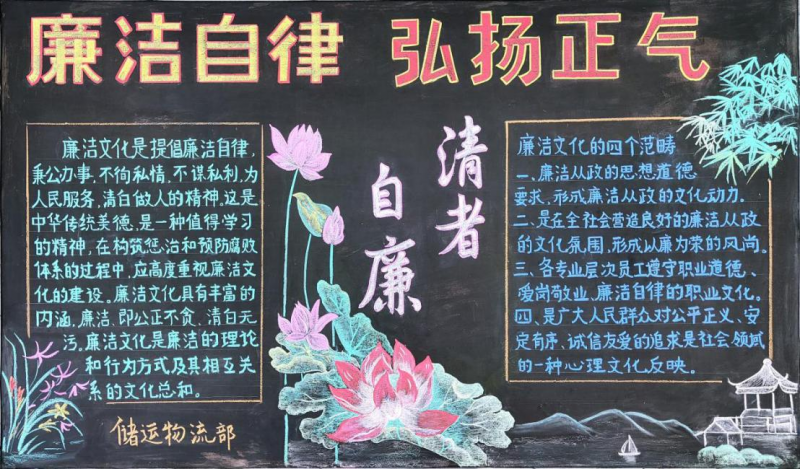 廉洁自律 弘扬正气
廉洁文化是提倡廉洁自律,
秉公办事、不徇私情、不谋私利、为
人民服务、清白做人的精神。这是
中华传统美德,是一种值得学习
的精神,在构筑惩治和预防腐败
体系的过程中,应高度重视廉洁文
化的建设。廉洁文化具有丰富的
内涵,廉洁,即公正不贪、清白无
污,廉洁文化是廉洁的理论
和行为方式及其相互关
系的文化总和。
储运物流部
清者
自廉
廉洁文化的四个范畴
一、廉洁从政的思想道德
要求,形成廉洁从政的文化动力。
二、是在全社会营造良好的廉洁从政
的文化氛围,形成以廉为荣的风尚。
三、各专业层次员工遵守职业道德、
爱岗敬业、廉洁自律的职业文化。
四、是广大人民群众对公平正义、安
定有序、诚信友爱的追求是社会领域
的一种心理文化反映。